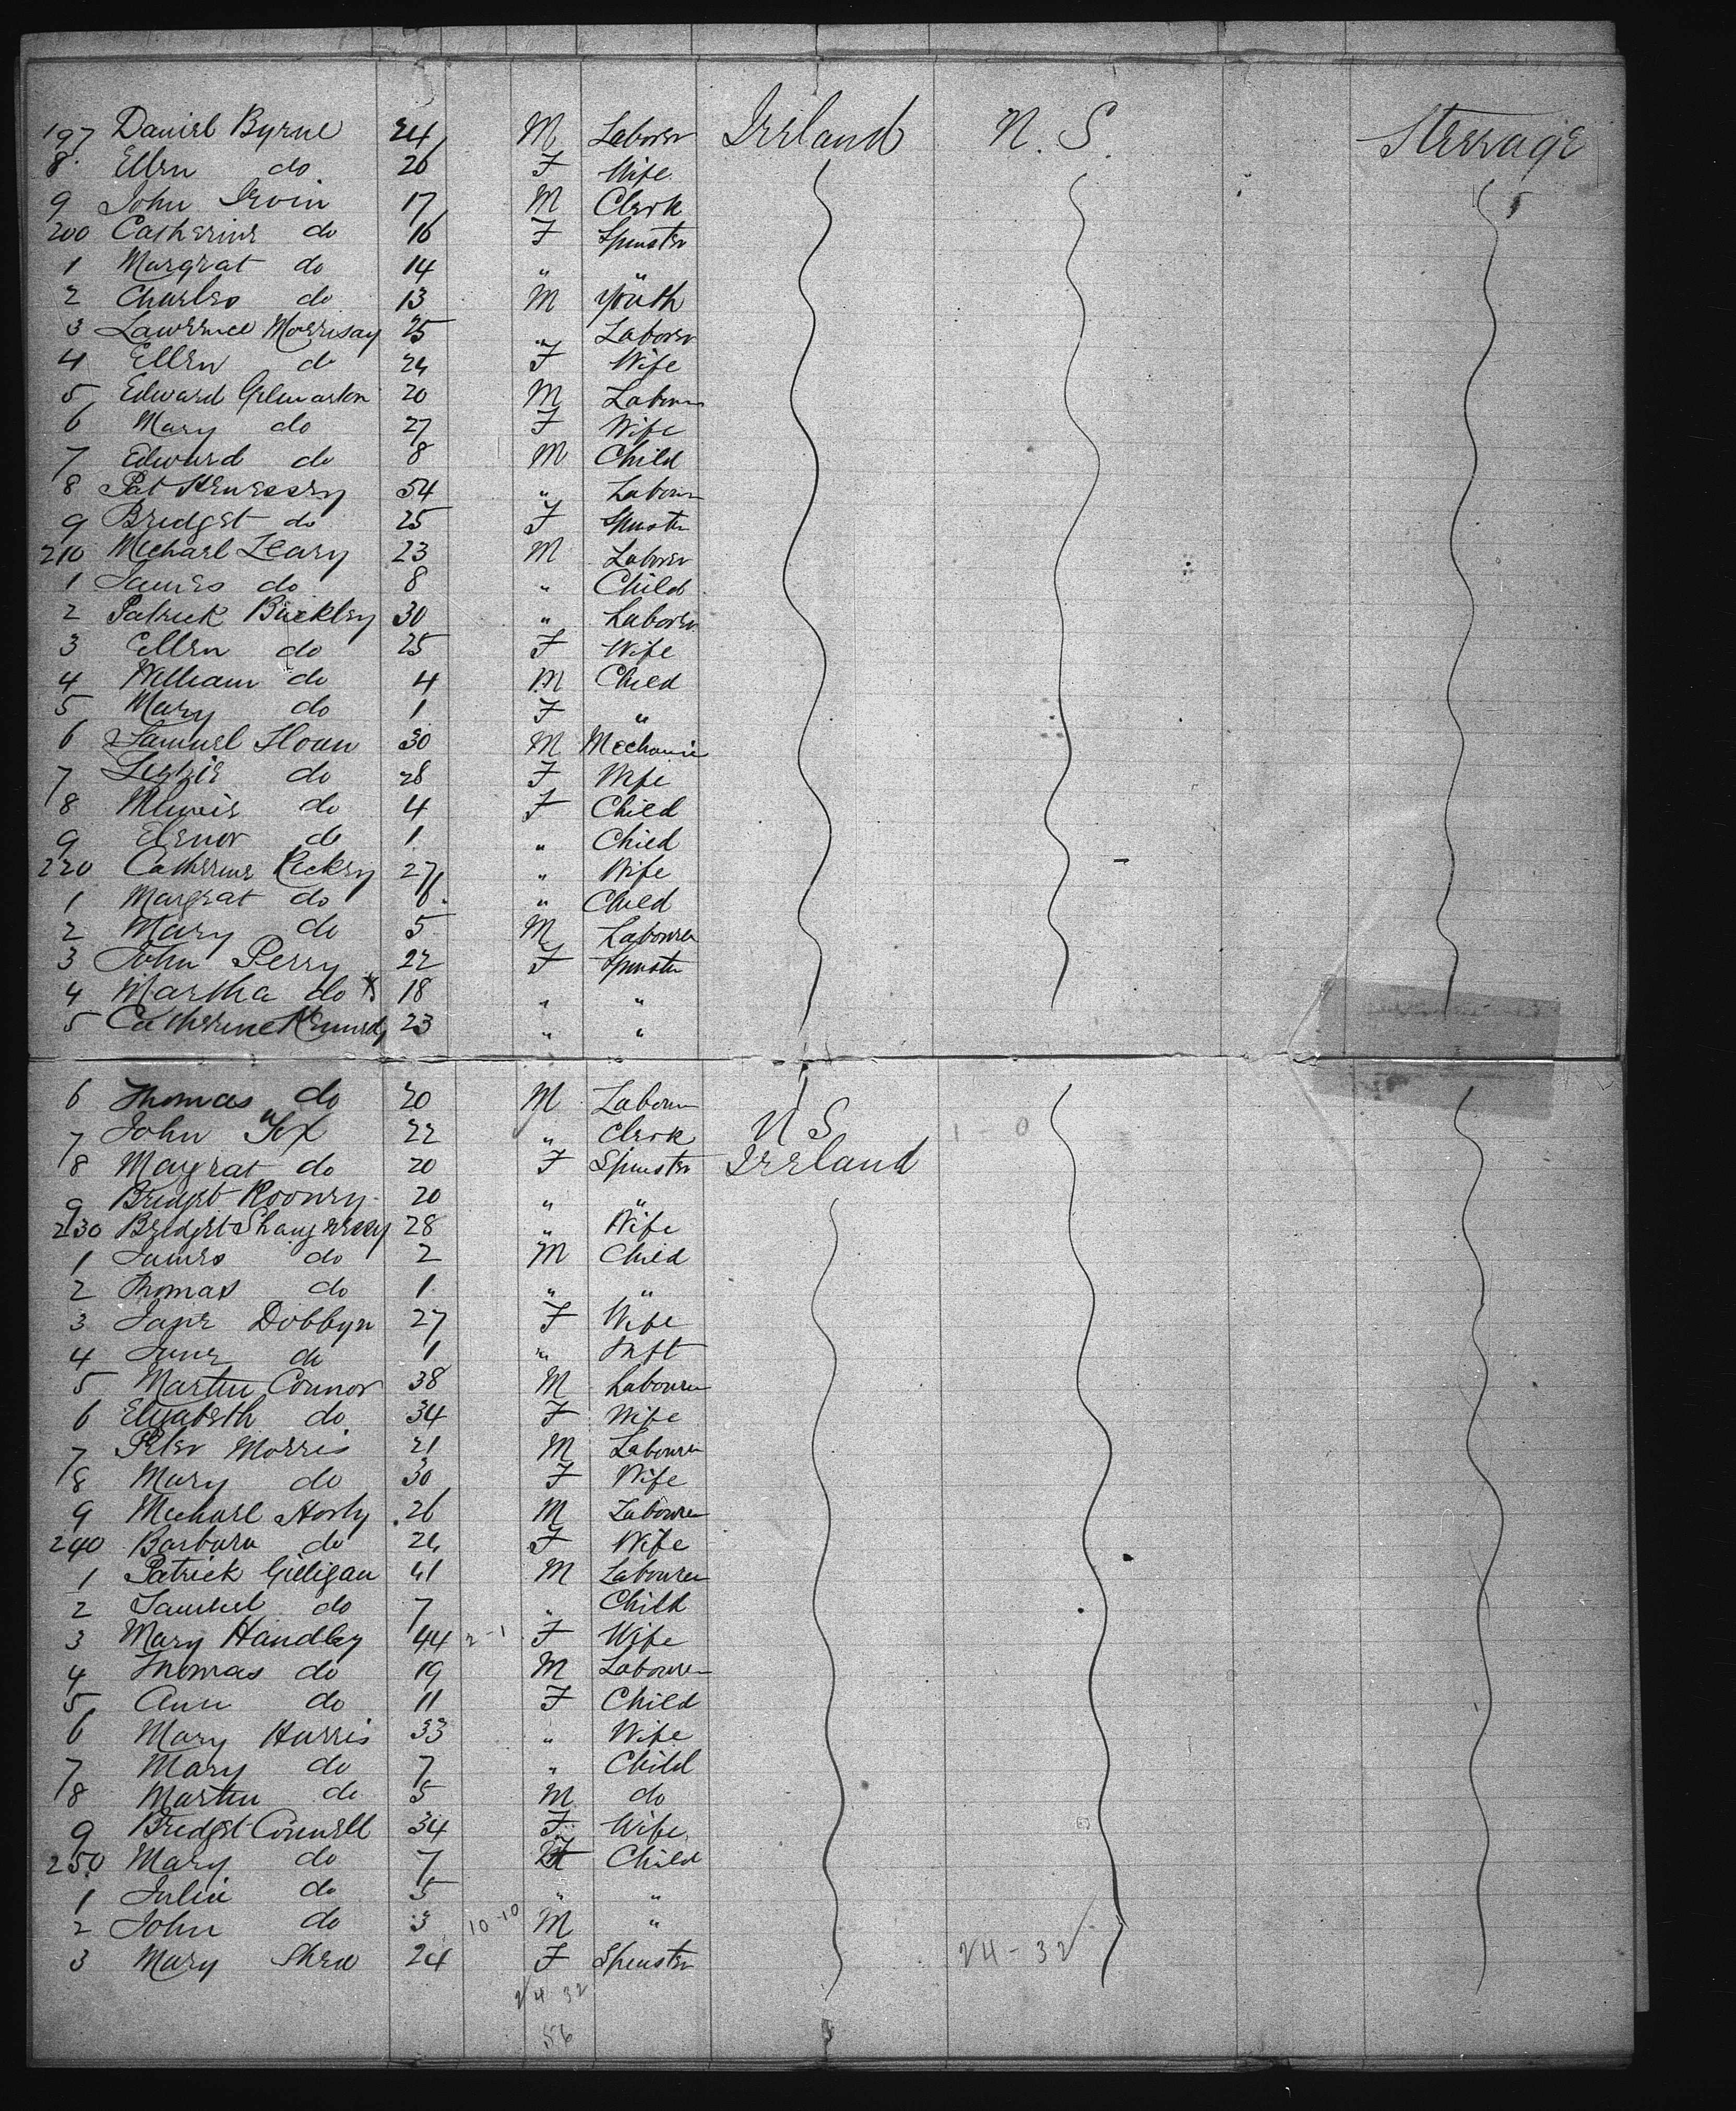 197 Daniel Byrne 24 M Laborer Ireland N. S. Steerage
8 Ellen do 26 F Wife
9 John Irvin 17 M Clerk
200 Catherine do 16 F Spinster
1 Margrat do 14 " "
2 Charles do 13 M Youth
3 Lawrence Morrisay 25 " Laborer
4 Ellen do 24 F Wife
5 Edward Gilmartin 20 M Laborer
6 Mary do 27 F Wife
7 Edward do 8 M Child
8 Pat Henessey 54 " Labour
9 Bridget do 25 F Spinster
210 Michael Leary 23 M Laborer
1 James do 8 " Child
2 Patrick Buckley 30 " Laborer
3 Ellen do 25 F Wife
4 William do 4 M Child
5 Mary do 1 F "
6 Samuel Sloan 30 M Mechanic
7 Lizzie do 28 F Wife
8 Minnie do 4 F Child
9 Elenor do 1 " Child
220 Catherine Hickey 27 " Wife
1 Margrat do 6 " Child
2 Mary do 5 M Labourer
3 John Perry 22 F Spinster
4 Martha do 18 " "
5 Catherine Kennedy 23 " "
6 Thomas do 20 M Labour
7 John 22 " Clerk U S 1 - 0
8 Margrat do 20 F Spinster Ireland
9 Bridget Rooney 20 " "
230 Bridget Shaugnessy 28 " Wife
1 James do 2 M Child
2 Thomas do 1 " "
3 Jane Dobbyn 27 F Wife
4 Jane do 1 " Inft
5 Martin Connor 38 M Labourer
6 Elizabeth do 34 F Wife
7 Peter Morris 21 M Labourer
8 Mary do 30 F Wife
9 Michael 26 M Labourer
240 Barbara do 24 F Wife
1 Patrick Gilligan 41 M Labourer
2 Samuel do 7 " Child
3 Mary Handley 44 2-1 F Wife
4 Thomas do 19 M Labourer
5 Ann do 11 F Child
6 Mary Harris 33 " Wife
7 Mary do 7 " Child
8 Martin do 5 M do
9 Bridget Connell 34 F Wife
250 Mary do 7 Child
1 Julia do 5 " "
2 John do 3 10-10 M "
3 Mary Shea 24 F Spinster 24-32
24 32
56